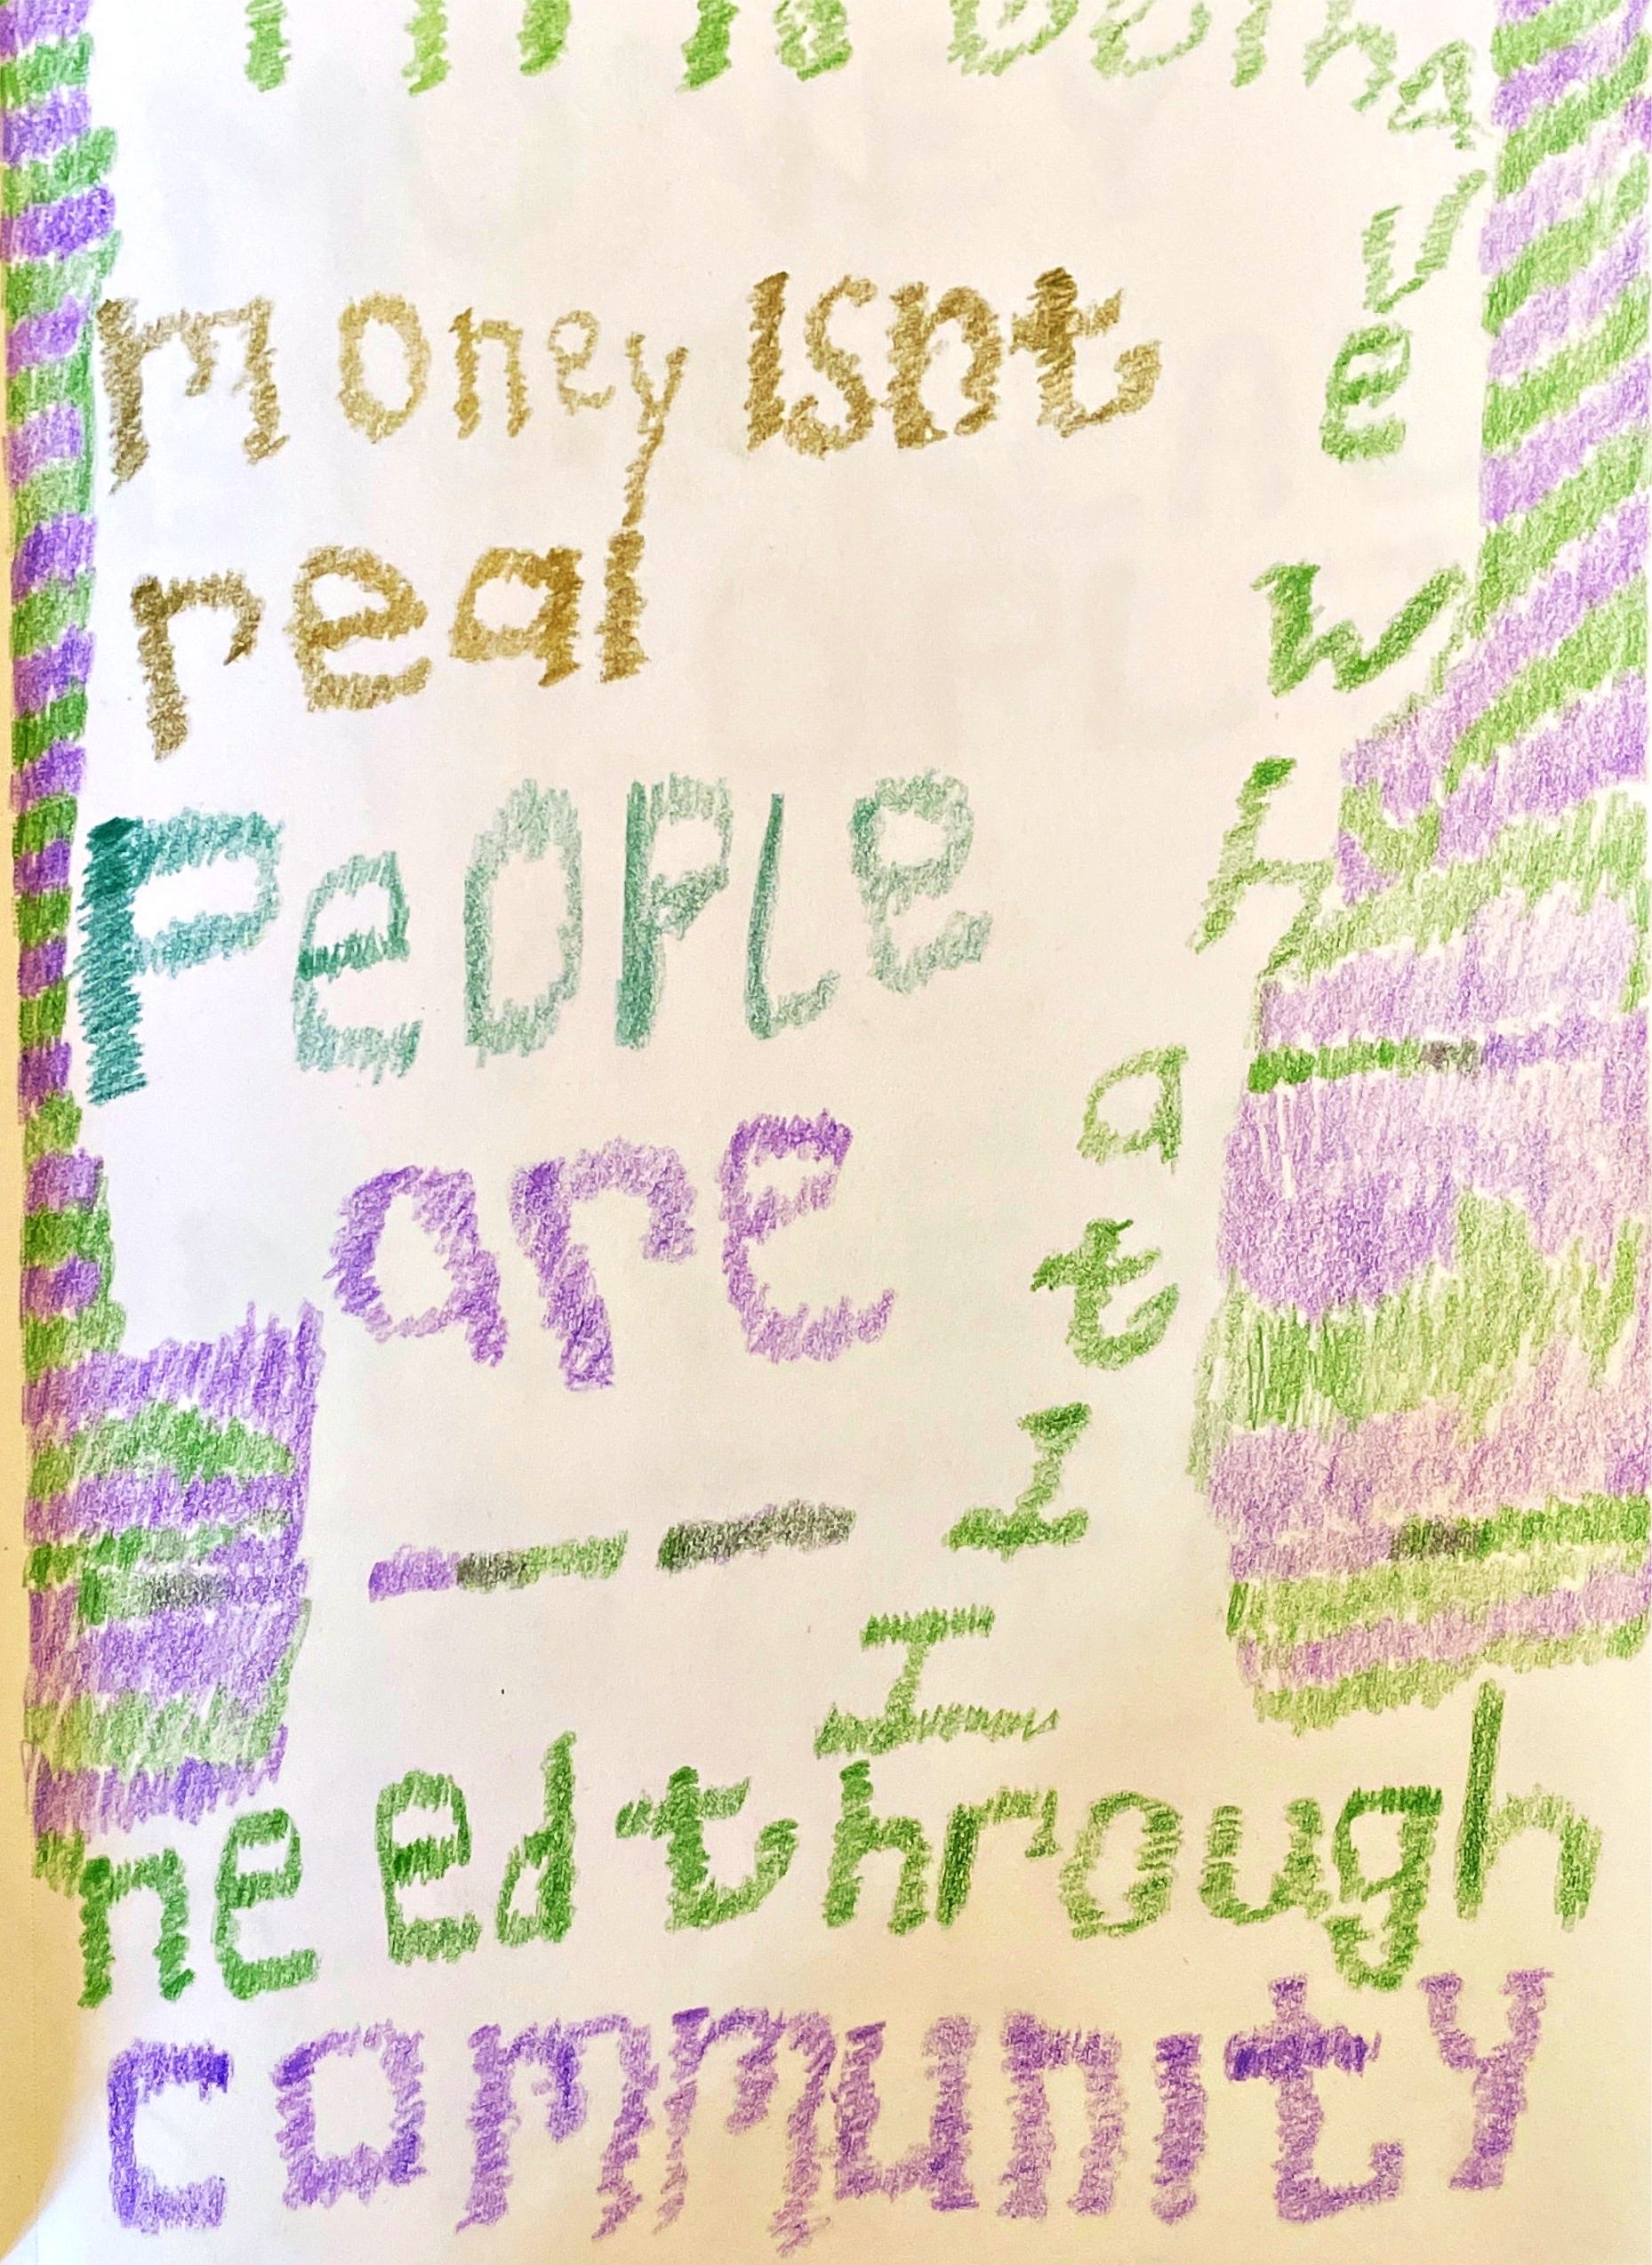 money Isnt
real
PeoPle
are
what I
I
need through
community